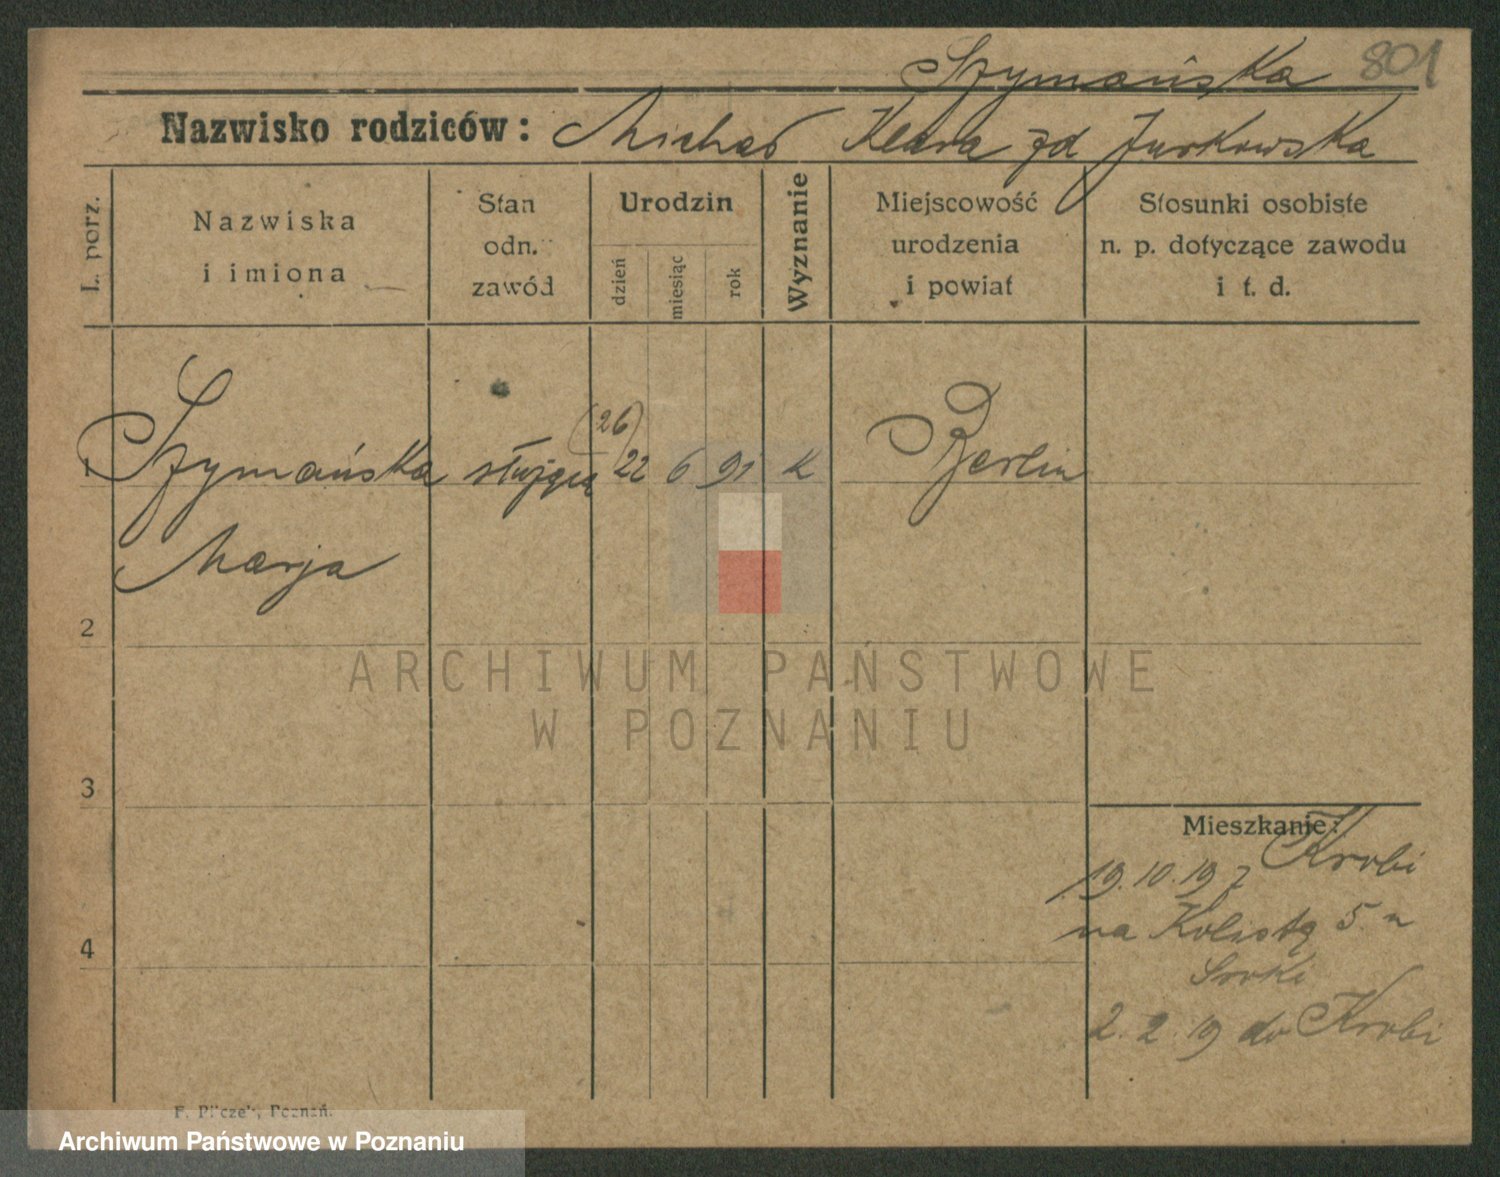 Szymańska 801
Nazwisko rodziców: Michał Klara zd Jurkowska
L. porz.
Nazwiska
i imiona
Stan
odn.
zawód
Urodzin
dzień
miesiąc
rok
Wyznanie
Miejscowość
urodzenia
i powiat
Stosunki osobiste
n. p. dotyczące zawodu
i t. d.
(26)
1 Szymańska służąca 22 6 91 K Berlin
Marja
2
ARCHIWUM PAŃSTWOWE
W POZNANIU
3
Mieszkanie:
19.10.19 z Krobi
na Kolistą 5 u
4
2.2.19 do Krobi
F. Pilczek, Poznań.
Archiwum Państwowe w Poznaniu